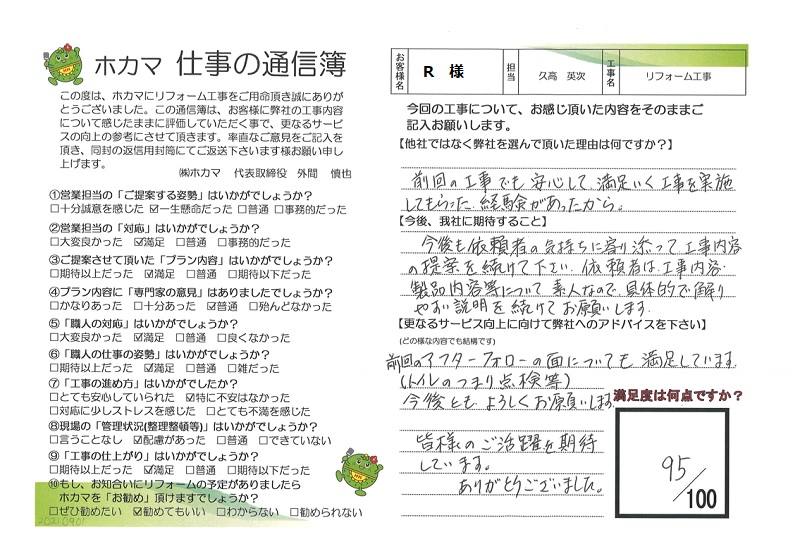 ホカマ 仕事の通信簿
この度は、ホカマにリフォーム工事をご用命頂き誠にありが
とうございました。この通信簿は、お客様に弊社の工事内容
について感じたままに評価していただく事で、更なるサービ
スの向上の参考にさせて頂きます。率直なご意見をご記入を
頂き、同封の返信用封筒にてご返送下さいます様お願い申し
上げます。
㈱ホカマ 代表取締役 外間 慎也
①営業担当の「ご提案する姿勢」はいかがでしょうか?
□十分誠意を感じた ☑一生懸命だった □普通 □事務的だった
②営業担当の「対応」はいかがでしょうか?
□大変良かった ☑満足 □普通 □事務的だった
③ご提案させて頂いた「プラン内容」はいかがでしょうか?
□期待以上だった ☑満足 □普通 □期待以下だった
④プラン内容に「専門家の意見」はありましたでしょうか?
□かなりあった □十分あった ☑普通 □殆んどなかった
⑤「職人の対応」はいかがでしょうか?
□大変良かった ☑満足 □普通 □良くなかった
⑥「職人の仕事の姿勢」はいかがでしょうか?
□期待以上だった ☑満足 □普通 □雑だった
⑦「工事の進め方」はいかがでしたか?
□とても安心していられた ☑特に不安はなかった
□対応に少しストレスを感じた □とても不満を感じた
⑧現場の「管理状況(整理整頓等)」はいかがでしょうか?
□言うことなし ☑配慮があった □普通 □できていない
⑨「工事の仕上がり」はいかがでしょうか?
□期待以上だった ☑満足 □普通 □期待以下だった
⑩もし、お知合いにリフォームの予定がありましたら
ホカマを「お勧め」頂けますでしょうか?
□ぜひ勧めたい ☑勧めてもいい □わからない □勧められない
20210901
お客様名 R 様 担当 久高 英次 工事名 リフォーム工事
今回の工事について、お感じ頂いた内容をそのままご
記入お願いします。
【他社ではなく弊社を選んで頂いた理由は何ですか?】
前回の工事でも安心して、満足いく工事を実施
してもらった、経験があったから。
【今後、我社に期待すること】
今後も依頼者の気持ちに寄り添って、工事内容
の提案を続けて下さい。依頼者は、工事内容・
製品内容等について素人なので、具体的で解り
やすい説明を続けてお願いします。
【更なるサービス向上に向けて弊社へのアドバイスを下さい】
(どの様な内容でも結構です)
前回のアフターフォローの面についても満足しています。
(トイレのつまり点検等)
今後とも よろしくお願いします。
皆様のご活躍を期待
しています。
ありがとうございました。
満足度は何点ですか?
95/100